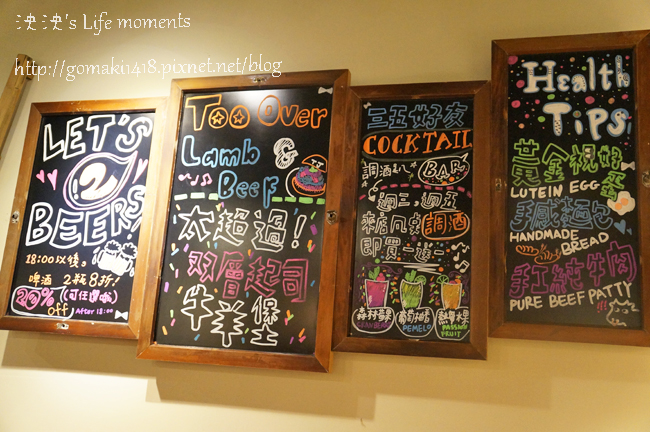 泱泱's Life moments
http://gomaki1418.pixnet.net/blog
LET'S
2
BEERS
18:00以後
啤酒 2瓶8折!
20% (可任選唷)
off After 18:00
Too Over
Lamb &
Beef
太超過!
双層起司
牛羊保士
三五好友
COCKTAIL
調酒八 BAR
週三,週五
來店凡點調酒
即買一送一
森林莓果
CRANBERRY
葡萄柚
PEMELO
熱情果
PASSION
FRUIT
Health
Tips
黃金視好蛋
LUTEIN EGG
手感麵包
HANDMADE
BREAD
手工純牛肉
PURE BEEF PATTY